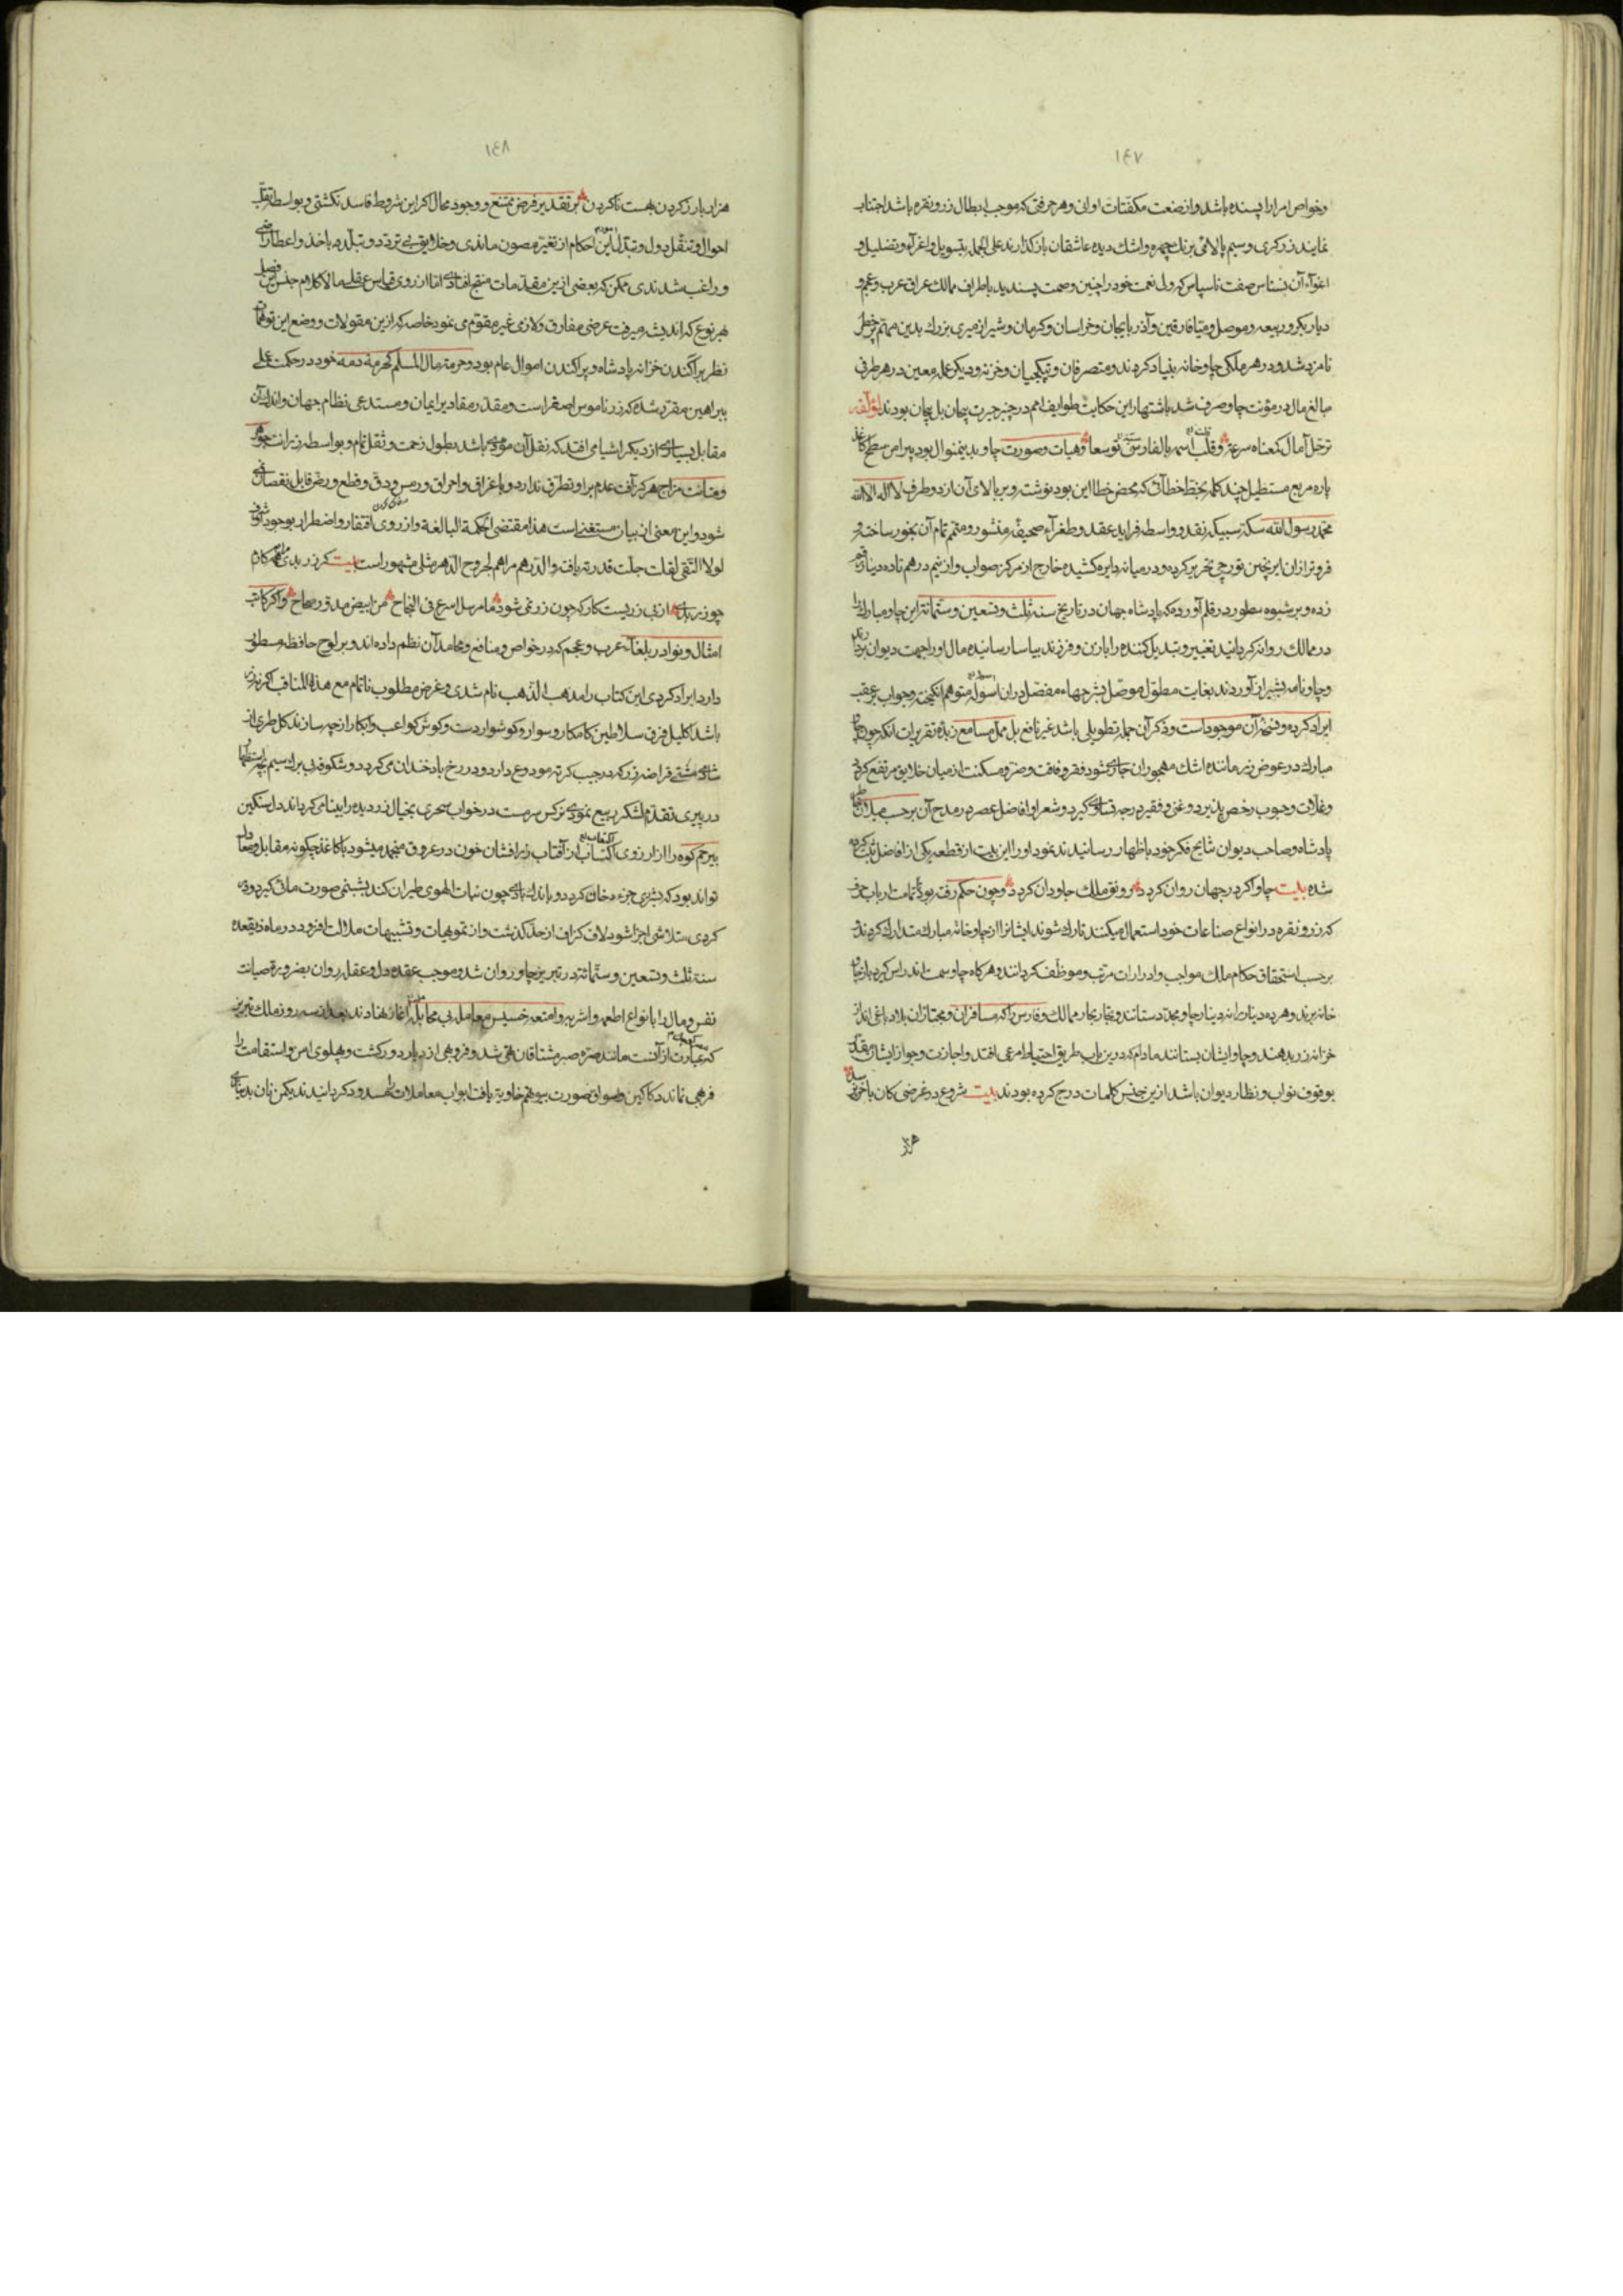 ١٤٧
وخواص امرا را پسنده باشد و از صنعت مکفتات اوانی و هر حرفتی که موجب ابطال زر و نقره باشد اجتناب
نمایند زرکری وسیم پالائی برنك چهره واشك دیده عاشقان بازکذارند علی الجمله بتسویل و اغراء و تضلیل و
اغوآء آن نسناس صفت ناسپاس که ولی نعمت خود را چنین وصمت پسندید باطراف ممالك عراق عرب وعجم و
دیاربکر و ربیعه و موصل و میافارقین و آذربایجان و خراسان و کرمان و شیراز میری بزرك بدین مهم پر خطر
نامزد شد و در هر ملکی چاوخانه بنیاد کردند و متصرفان و بتیکچیان و خزنه و دیکر عمله معین در هر طرفی
مبالغ مال در مؤنت چاو صرف شد باشتهار این حکایت طوایف امم در چنبر حیرت پیچان بل بیجان بودند لمؤلفه
ترحل آمال کمعناه سرعة وقلب اسمه بالفارسی توسعا وهیات وصورت چاو بدینمنوال بود پیرامن سطح کاغذ
پاره مربع مستطیل چند کلمه بخط خطائی که محض خطا این بود نوشته و بر بالای آن از دو طرف لااله الاالله
محمد رسول الله سکه سبیکه نقد و واسطه فراید عقد و طغراء صحیفه منشور و متمم تمام آن بخور ساخته و
فروتر ازان ایرنجین تورجی تحریر کرده و در میانه دایره کشیده خارج از مرکز صواب و از نیم درهم تا ده دینار رقم
زده و بر شیوه سطور در قلم آورده که پادشاه جهان در تاریخ سنه ثلث وتسعین وستمائة این چاو مبارك را
در ممالك روانه کردانید تغییر و تبدیل کننده را با زن و فرزند بیاسا رسانیده مال او را جهت دیوان بردارند
و چاونامه بشیراز آوردند بغایت مطول موصل بشرحهاء مفصل دران اسوله متوهم انکیخته و جواب بر عقب
ایراد کرده و نسخه آن موجود است و ذکر آن جمله تطویلی باشد غیر نافع بل ممل مسامع زبده تقریرات انکه چون چاو
مبارك در عوض زر مانند اشك مهجوران جاری شود فقر و فاقت و ضر و مسکنت از میان خلایق مرتفع کردد
و غلات و حبوب رخص پذیرد و غنی و فقیر درجه تساوی کیرد و شعرا و افاضل عصر در مدح آن بر حسب میلان خاطر
پادشاه و صاحب دیوان نتایج فکر خود باظهار رسانیدند نمودار را این بیت از قطعه یکی از افاضل ثبت کرده
شده بیت چاو اکر در جهان روان کردد رونق ملك جاودان کردد وچون حکم رفته بود تا تمامت ارباب حرف
که زر و نقره در انواع صناعات خود استعمال میکنند تارك شوند ایشانرا از چاوخانه مبارك متدارك کردند و
بر حسب استحقاق حکام ملك مواجب و ادرارات مرتب و موظف کردانند و هرکاه چاو سمت اندراس کیرد باز چاو
خانه برند و هر ده دینار را نه دینار چاو مجدد ستانند و تجار بحار ممالك و فارس را که مسافران و مجتازان بلاد باغی اند از
خزانه زر بدهند و چاو ایشان بستانند مادام که درین باب طریق احتیاط مرعی افتد و اجازت و جواز ایشان مقید
بوقوف نواب و نظار دیوان باشد ازین جنس کلمات درج کرده بودند بیت شروع در غرضی کان باخر
هزار
١٤٨
هزار بار زکردن بهست ناکردن بر تقدیر فرض ممتنع و وجود محال اکر این شروط فاسد نکشتی و بواسطه تقلب
احوال و تنقل دول و تبدل این احکام از تغیر مصون ماندی و خلایق بی تردد و تبلد باخذ و اعطا راضی
و راغب شدندی ممکن که بعضی ازین مقدمات منتج افتادی اما از روی قیاس عقلی مالاکلام جنس بی فصل
بهر نوع که اندیشه میرفت عرضی مفارق و لازمی غیر مقوم می نمود خاصه که ازین مقولات و وضع این
نظر بر آکندن خزانه پادشاه و پراکندن اموال عام بود وحرمة مال المسلم کحرمة دمه خود در حکمت عملی
ببراهین مقرر شده که زر ناموس اصغر است و مقدر مقادیر ایمان و مستدعی نظام جهان و اندك آن
مقابل بسیاری از دیکر اشیا می افتد که نقل آن مؤدی باشد بطول زحمت و ثقل تام و بواسطه رزانت جوهر
ومتانت مزاج هرکز آفت عدم براو تطرق ندارد و باغراق و احراق و رمس ودق و قطع و رض قابل نقصان نمی
شود و این معنی از بیان مستغنی است هذا مقتضی الحکمة البالغة و از روی افتقار و اضطرار بوجود او
لولا التقی لقلت جلت قدرته یافته و الدرهم مراهم لجروح الدهر مثلی مشهور است بیت که زر بدی همه کارم
چو زر بدی از بی زریست کار که چون زر نمی شود ما مرسل اسرع فی النجاح من ابیض مدور صحاح واکر کاتب
امثال و نوادر بلغاء عرب و عجم که در خواص و منافع و محامد آن نظم داده اند و بر لوح حافظه مسطور
دارد ایراد کردی این کتاب را مذهب الذهب نام شدی و غرض مطلوب ناتمام مع هذه المناقب اکر نه زر
باشد اکلیل فرق سلاطین کامکار و سوار و کوشوار دست و کوش کواعب و ابکار از چه سازند کل طری از
شاخ مشتی قراضه زر که در جیب کرته مودوع دارد و در رخ باد خندان می کردد و شکوفه بی برك سیم
در پیری تقدم لشکر ربیع نمودی نرکس سرمست در خواب سحری بخیال زر دیده را بینا می کرداند دل سنکین
بیرحم کوه را از آرزوی اکتساب از آفتاب زر افشان خون در عروق منجمد میشود با کاغذ چکونه مقابل و معادل
تواند بود که بشرری جزء دخان کردد و باندك بادی چون نبات الهوی طیران کند بشبنمی صورت مائی کیرد و
کردی متلاشی اجزا شود لاف کزاف از حد کذشت و از تمویهات و تشبیهات ملالت افزود در ماه ذیقعده
سنه ثلث و تسعین و ستمائة در تبریز چاو روان شد و موجب عقده دل و عقله روان بضرورة صیانت
نفس و مال را بانواع اطعمه و اشربه و امتعه خسیس معامله بی محابا آغاز نهادند بعد از سه روز ملك تبریز
که عبارت از آنست مانند صره صبر مشتاقان تهی شد و فروهی از دیار دور کشت و پهلوی امن و استقامت را
فرهی نماند دکاکین و اسواق صورت بیوتهم خاویة یافت ابواب معاملات مسدود کردانیدند یکمن نان بدیناری